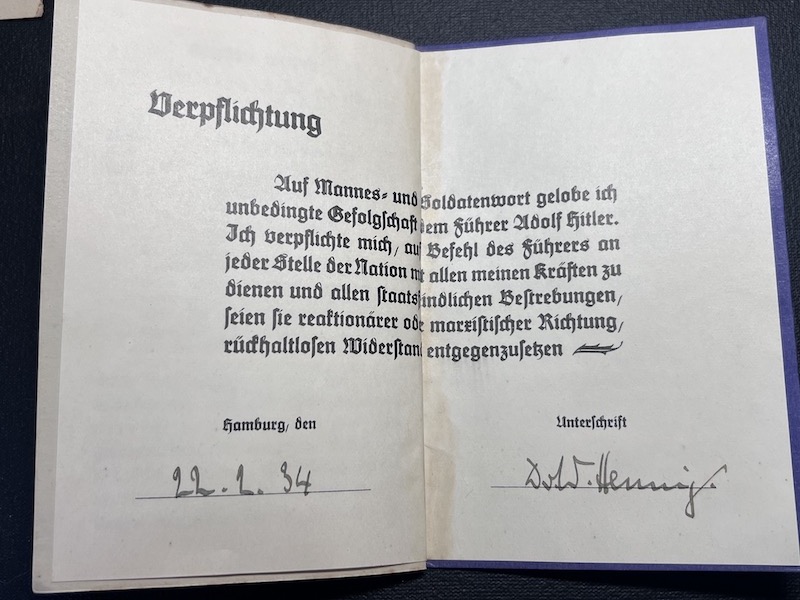 Verpflichtung
Auf Mannes- und Soldatenwort gelobe ich
unbedingte Gefolgschaft dem Führer Adolf Hitler.
Ich verpflichte mich, auf Befehl des Führers an
jeder Stelle der Nation mit allen meinen Kräften zu
dienen und allen staatsfeindlichen Bestrebungen,
seien sie reaktionärer oder marxistischer Richtung,
rückhaltlosen Widerstand entgegenzusetzen
Hamburg, den
Unterschrift
22. 2. 34
Hennig.